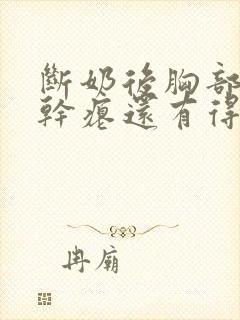 斷奶後胸部
幹癟還有得
冉廟